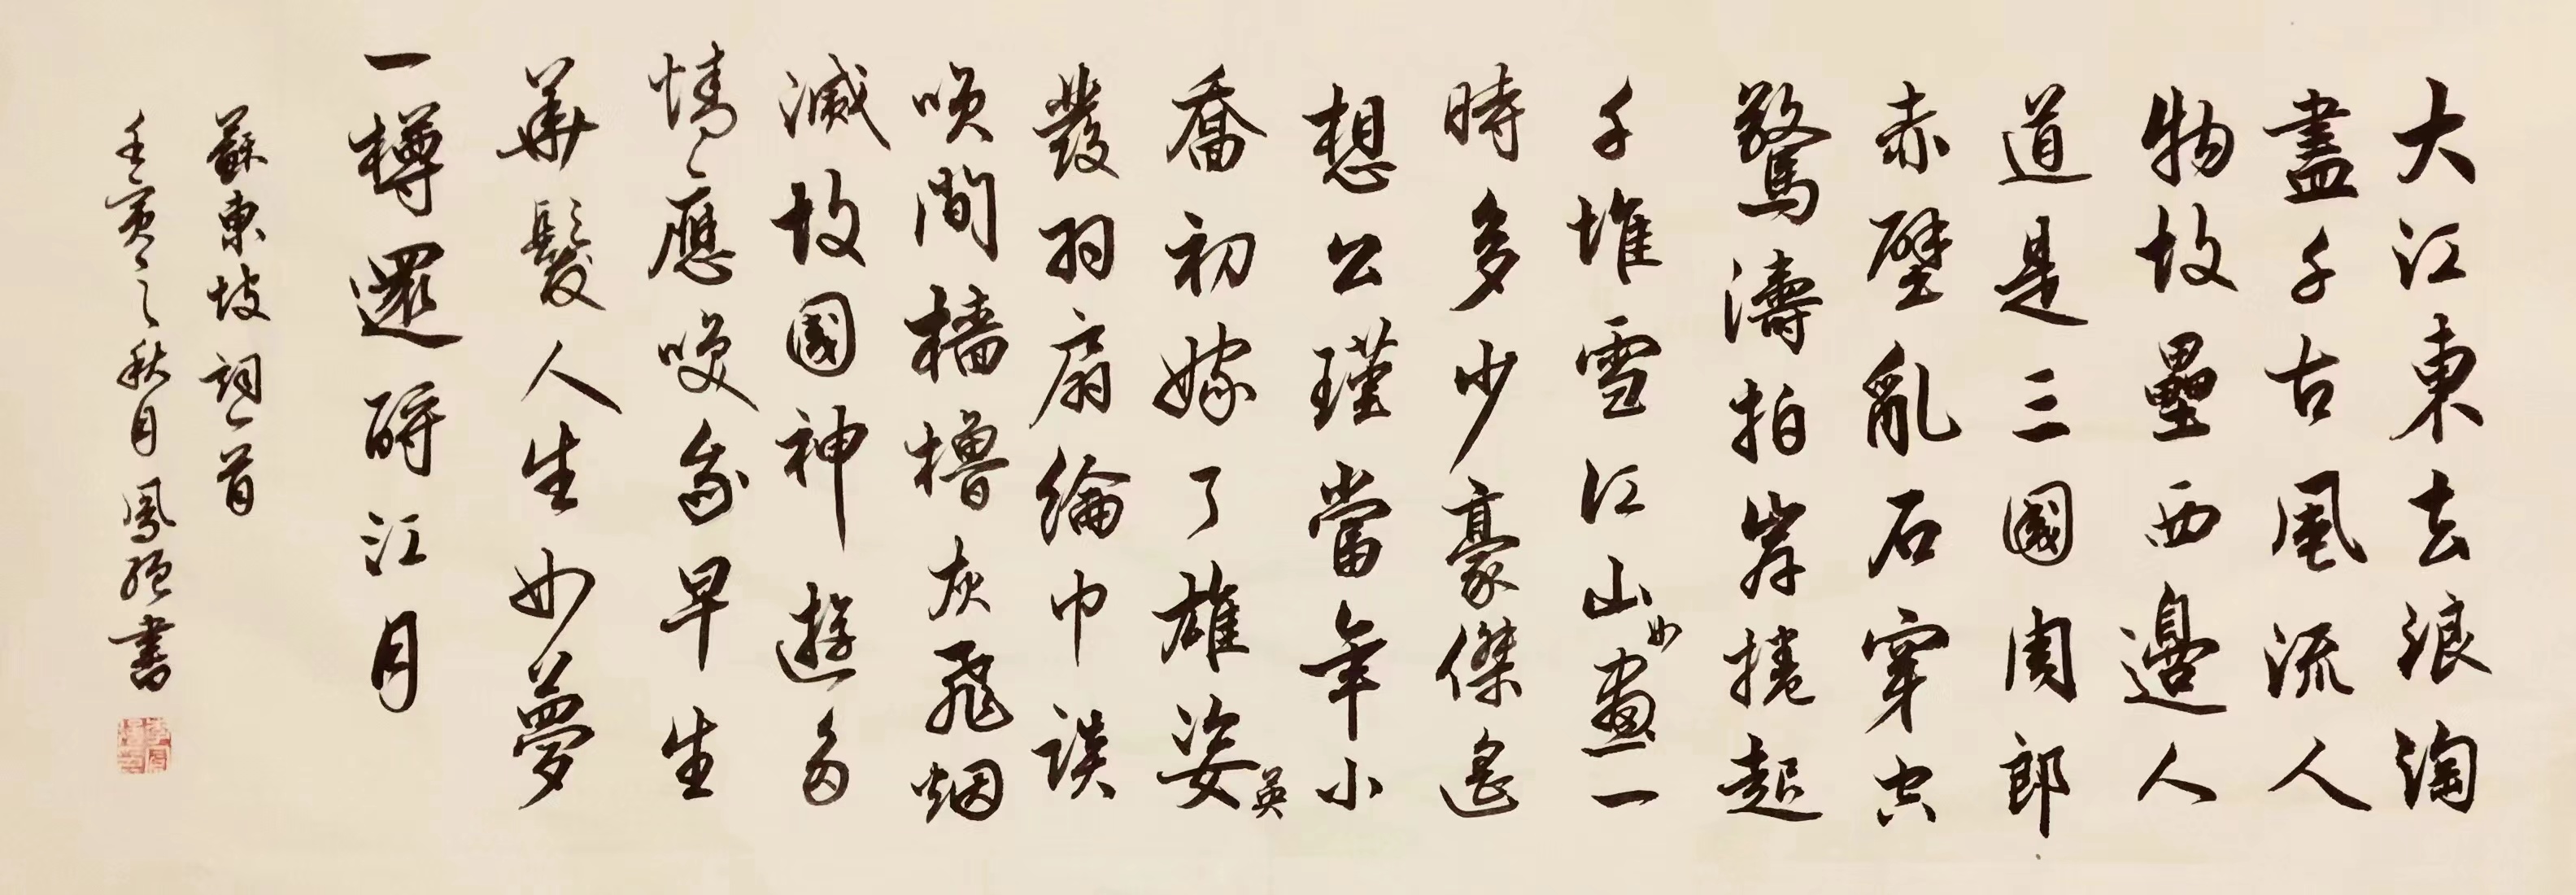 大江東去浪淘
盡千古風流人
物故壘西邊人
道是三國周郎
赤壁亂石穿空
驚濤拍岸捲起
千堆雪江山如畫一
時多少豪傑遙
想公瑾當年小
喬初嫁了雄姿英
發羽扇綸巾談
笑間檣櫓灰飛烟
滅故國神遊多
情應笑我早生
華髮人生如夢
一樽還酹江月
蘇東坡詞一首
壬寅之秋月鳳強書